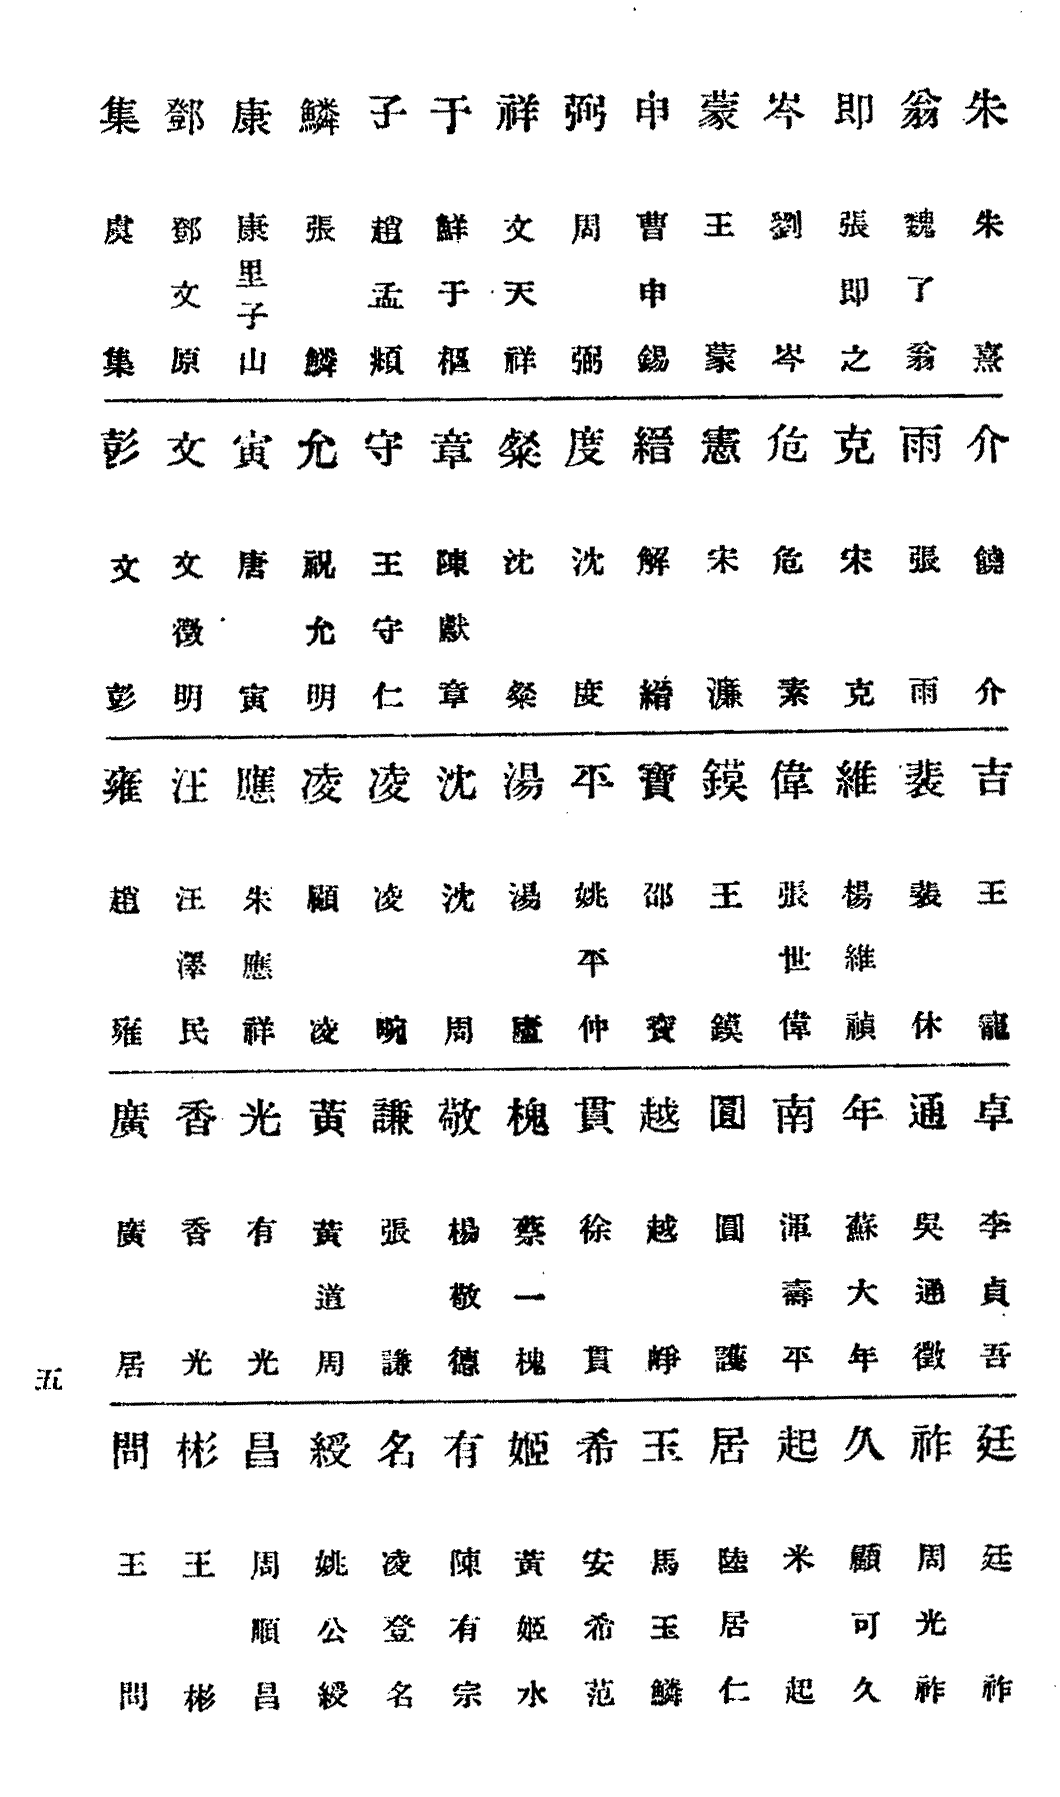 朱 朱熹
翁 魏了翁
即 張即之
岑 劉岑
蒙 王蒙
申 曹申錫
弼 周弼
祥 文天祥
于 鮮于樞
子 趙孟頫
鱗 張鱗
康 康里子山
鄧 鄧文原
集 虞集
介 饒介
雨 張雨
克 宋克
危 危素
憲 宋濂
縉 解縉
度 沈度
粲 沈粲
章 陳獻章
守 王守仁
允 祝允明
寅 唐寅
文 文徵明
彭 文彭
吉 王寵
裴 裴休
維 楊維禎
偉 張世偉
鏌 王鏌
寶 邵寶
平 姚平仲
湯 湯
沈 沈周
凌 凌畹
凌 顧凌
應 朱應祥
汪 汪澤民
雍 趙雍
卓 李貞吾
通 吳通徵
年 蘇大年
南 渾壽平
圓 圓護
越 越崢
貫 徐貫
槐 蔡一槐
敬 楊敬德
謙 張謙
黃 黃道周
光 有光
香 香光
廣 廣居
廷 廷祚
祚 周光祚
久 顧可久
起 米起
居 陸居仁
玉 馬玉鱗
希 安希范
姬 黃姬水
有 陳有宗
名 凌登名
綬 姚公綬
昌 周順昌
彬 王彬
問 王問
五